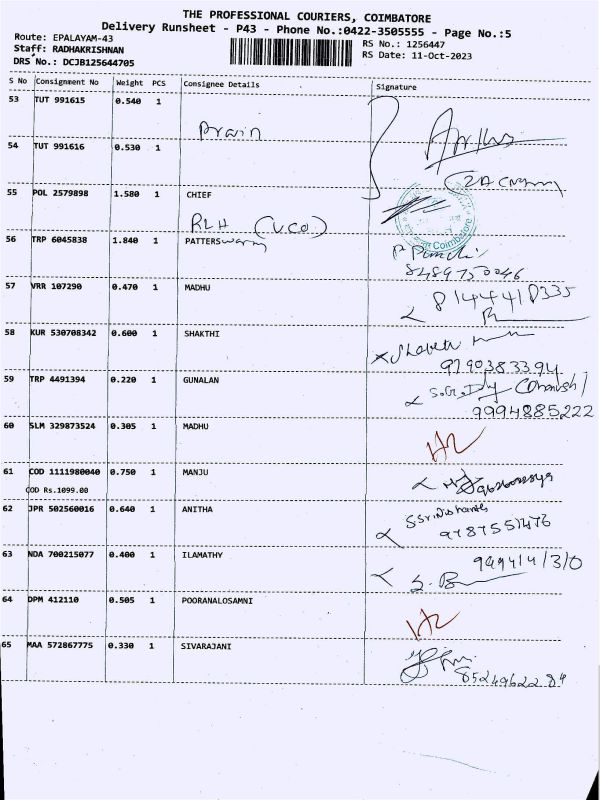 THE PROFESSIONAL COURIERS, COIMBATORE
Delivery Runsheet - P43 - Phone No.:0422-3505555 - Page No.:5
Route: EPALAYAM-43
RS No.: 1256447
Staff: RADHAKRISHNAN
RS Date: 11-Oct-2023
DRS No.: DCJB125644705
S No Consignment No Weight PCS Consignee Details Signature
53 TUT 991615 0.540 1
54 TUT 991616 0.530 1
55 POL 2579898 1.580 1 CHIEF
RLH (UCO)
Coimbatore
56 TRP 6045838 1.840 1 PATTERSwamy
8489750046
57 VRR 107290 0.470 1 MADHU
8144418335
58 KUR 530708342 0.600 1 SHAKTHI
9790383394
59 TRP 4491394 0.220 1 GUNALAN
9994885222
60 SLM 329873524 0.305 1 MADHU
61 COD 1111980040 0.750 1 MANJU
COD Rs.1099.00
62 JPR 502560016 0.640 1 ANITHA
9787551476
63 NDA 700215077 0.400 1 ILAMATHY
64 DPM 412110 0.505 1 POORANALOSAMNI
65 MAA 572867775 0.330 1 SIVARAJANI
8524962284